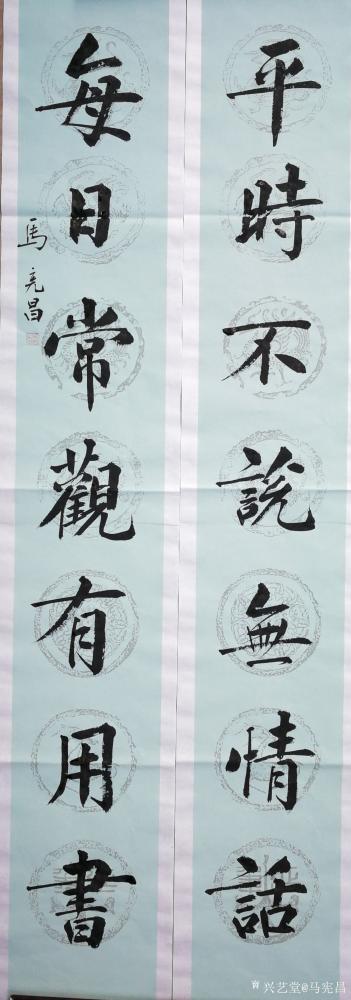 平時不説無情話
每日常觀有用書
馬宪昌
兴艺堂@马宪昌